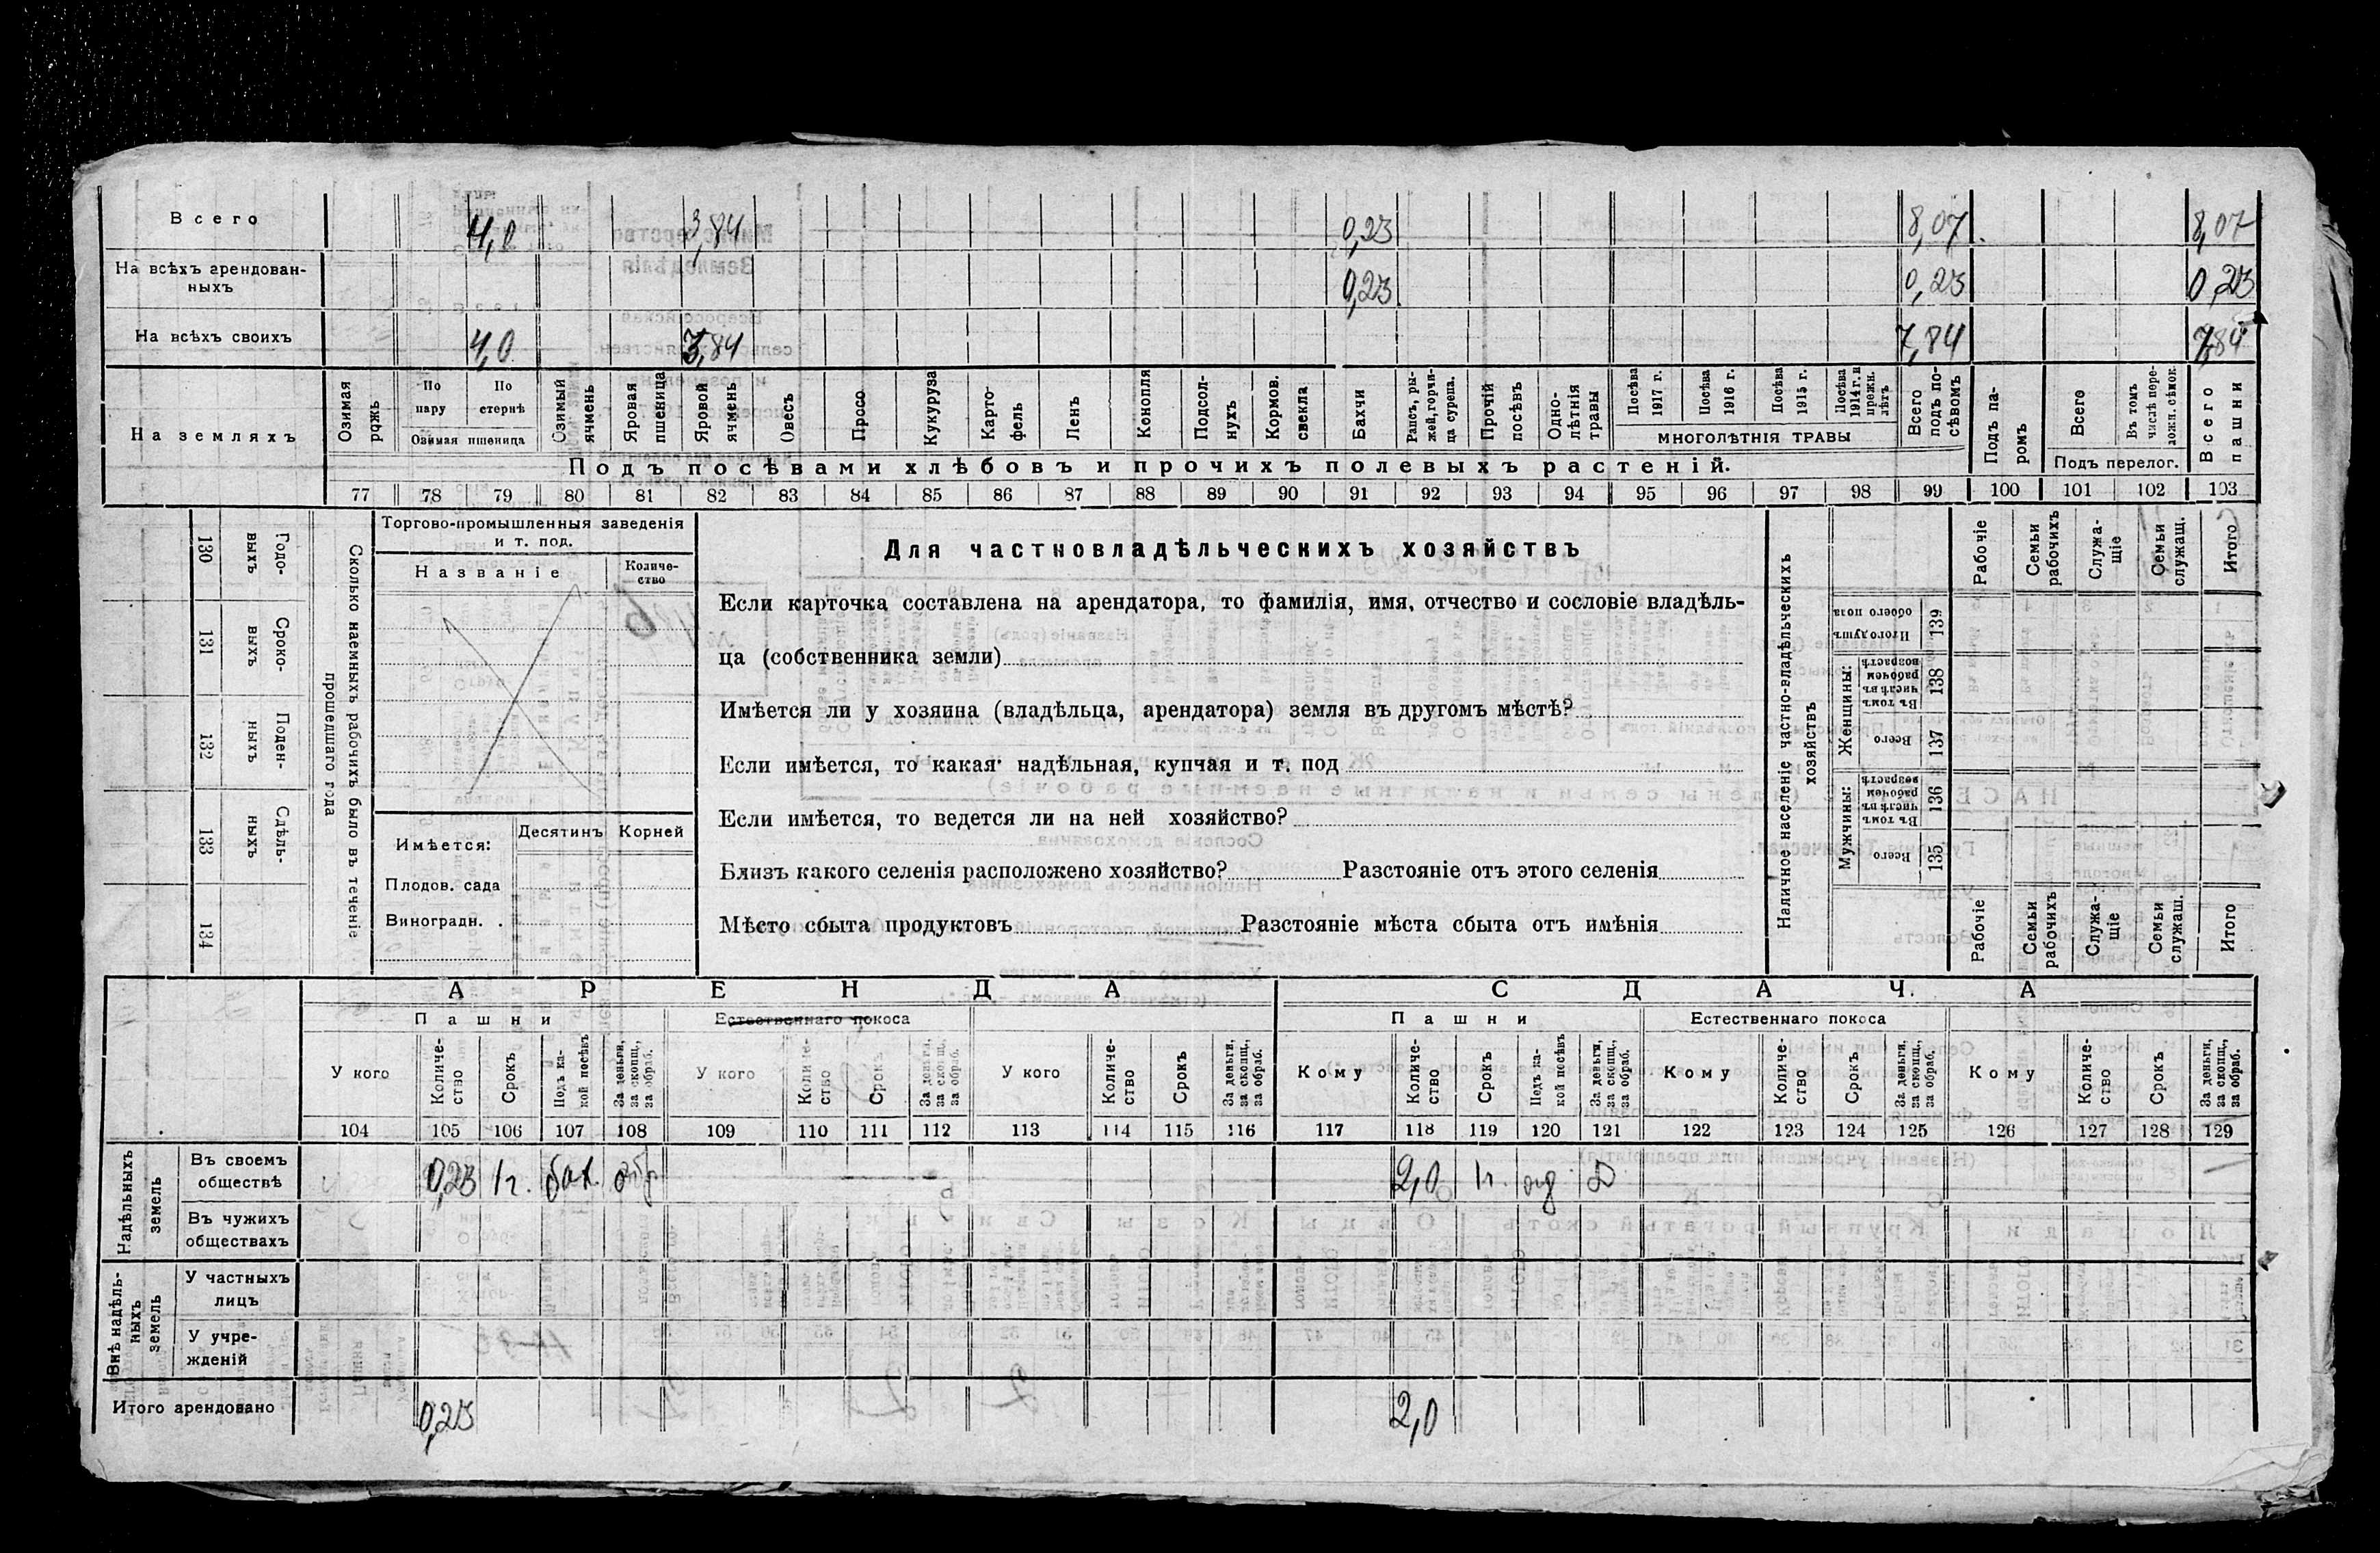 Всего 4,0 3,84 0,23 8,07 8,07
На всѣхъ арендован-
ныхъ 0,23 0,23 0,23
На всѣхъ своихъ 4,0 3,84 7,84 7,84
На земляхъ
Озимая рожь
По пару
По стернѣ
Озимая пшеница
Озимый ячмень
Яровая пшеница
Яровой ячмень
Овесъ
Просо
Кукуруза
Карто-
фель
Ленъ
Конопля
Подсол-
нухъ
Кормов. свекла
Бахчи
Рапсъ, ры-
жей, горчи-
ца сурепа.
Прочій посѣвъ
Одно-
лѣтнія травы
Посѣва 1917 г.
Посѣва 1916 г.
Посѣва 1915 г.
Посѣва 1914 г. и прежн. лѣтъ
МНОГОЛѢТНІЯ ТРАВЫ
Всего подъ по-
сѣвомъ
Подъ па-
ромъ
Всего
Въ томъ числѣ пере-
ложн. сѣнок.
Подъ перелог.
Всего пашни
Подъ посѣвами хлѣбовъ и прочихъ полевыхъ растеній.
77 78 79 80 81 82 83 84 85 86 87 88 89 90 91 92 93 94 95 96 97 98 99 100 101 102 103
130 Годо-
выхъ
131 Сроко-
выхъ
132 Поден-
ныхъ
133 Сдѣль-
ныхъ
134
Сколько наемныхъ рабочихъ было въ теченіе
прошедшаго года
Торгово-промышленныя заведенія
и т. под.
Названіе
Количе-
ство
Имѣется:
Десятинъ Корней
Плодов. сада
Виноградн. .
Для частновладѣльческихъ хозяйствъ
Если карточка составлена на арендатора, то фамилія, имя, отчество и сословіе владѣль-
ца (собственника земли)
Имѣется ли у хозяина (владѣльца, арендатора) земля въ другомъ мѣстѣ?
Если имѣется, то какая: надѣльная, купчая и т. под
Если имѣется, то ведется ли на ней хозяйство?
Близъ какого селенія расположено хозяйство? Разстояніе отъ этого селенія
Мѣсто сбыта продуктовъ Разстояніе мѣста сбыта отъ имѣнія
Наличное населеніе частно-владѣльческихъ
хозяйствъ
Рабочіе
Семьи рабочихъ
Служа-
щіе
Семьи служащ.
Итого
Итого душъ обоего пола 139
Женщины:
Въ томъ числѣ въ рабочемъ возрастѣ 138
Всего 137
Мужчины:
Въ томъ числѣ въ рабочем возрастѣ 136
Всего 135
Рабочіе
Семьи рабочихъ
Служа-
щіе
Семьи служащ.
Итого
АРЕНДА
СДАЧА
Пашни
Естественнаго покоса
Пашни
Естественнаго покоса
У кого
Количе-
ство
Срокъ
Подъ ка-
кой посѣвъ
За деньги, за скопщ., за обраб.
У кого
Количе-
ство
Срокъ
За деньги, за скопщ., за обраб.
У кого
Количе-
ство
Срокъ
За деньги, за скопщ., за обраб.
Кому
Количе-
ство
Срокъ
Подъ ка-
кой посѣвъ
За деньги, за скопщ., за обраб.
Кому
Количе-
ство
Срокъ
За деньги, за скопщ., за обраб.
Кому
Количе-
ство
Срокъ
За деньги, за скопщ., за обраб.
104 105 106 107 108 109 110 111 112 113 114 115 116 117 118 119 120 121 122 123 124 125 126 127 128 129
Надѣльныхъ земель
Въ своемъ
обществѣ 0,23 1г. бах. обр. 2,0
Въ чужихъ
обществахъ
Внѣ надѣль-
ныхъ земель
У частныхъ
лицъ
У учре-
жденій
Итого арендовано 0,23 2,0